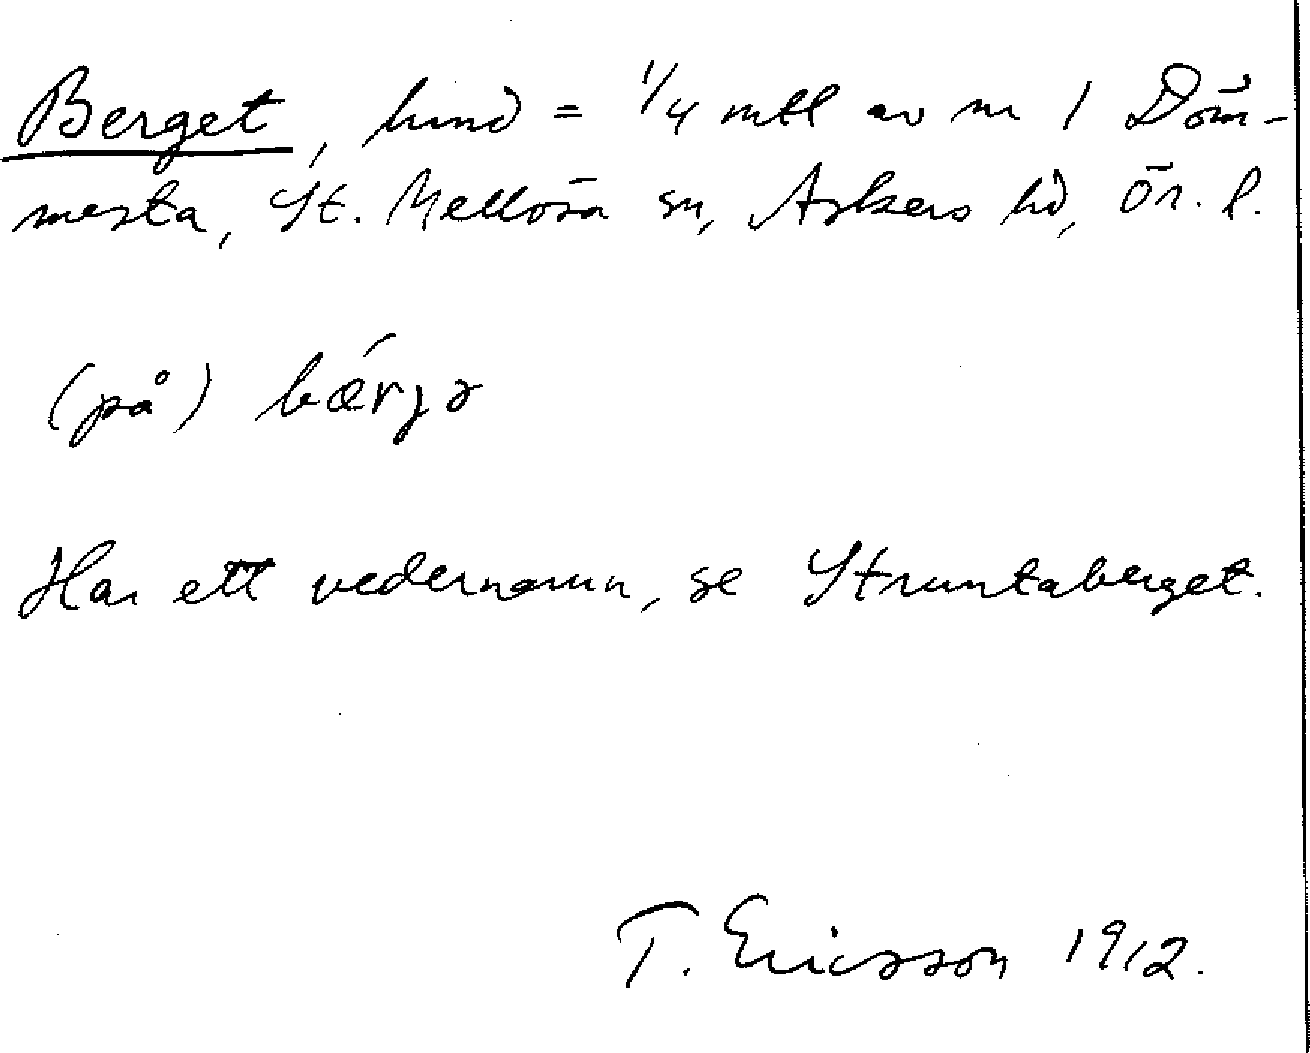 Berget, hmd = 1/4 mtl av nr 1 Döm-
mesta, St. Mellösa sn, Askers hd, Ör. l.
(på) bǽrjə
Har ett vedernamn, se Struntaberget.
T. Ericsson 1912.